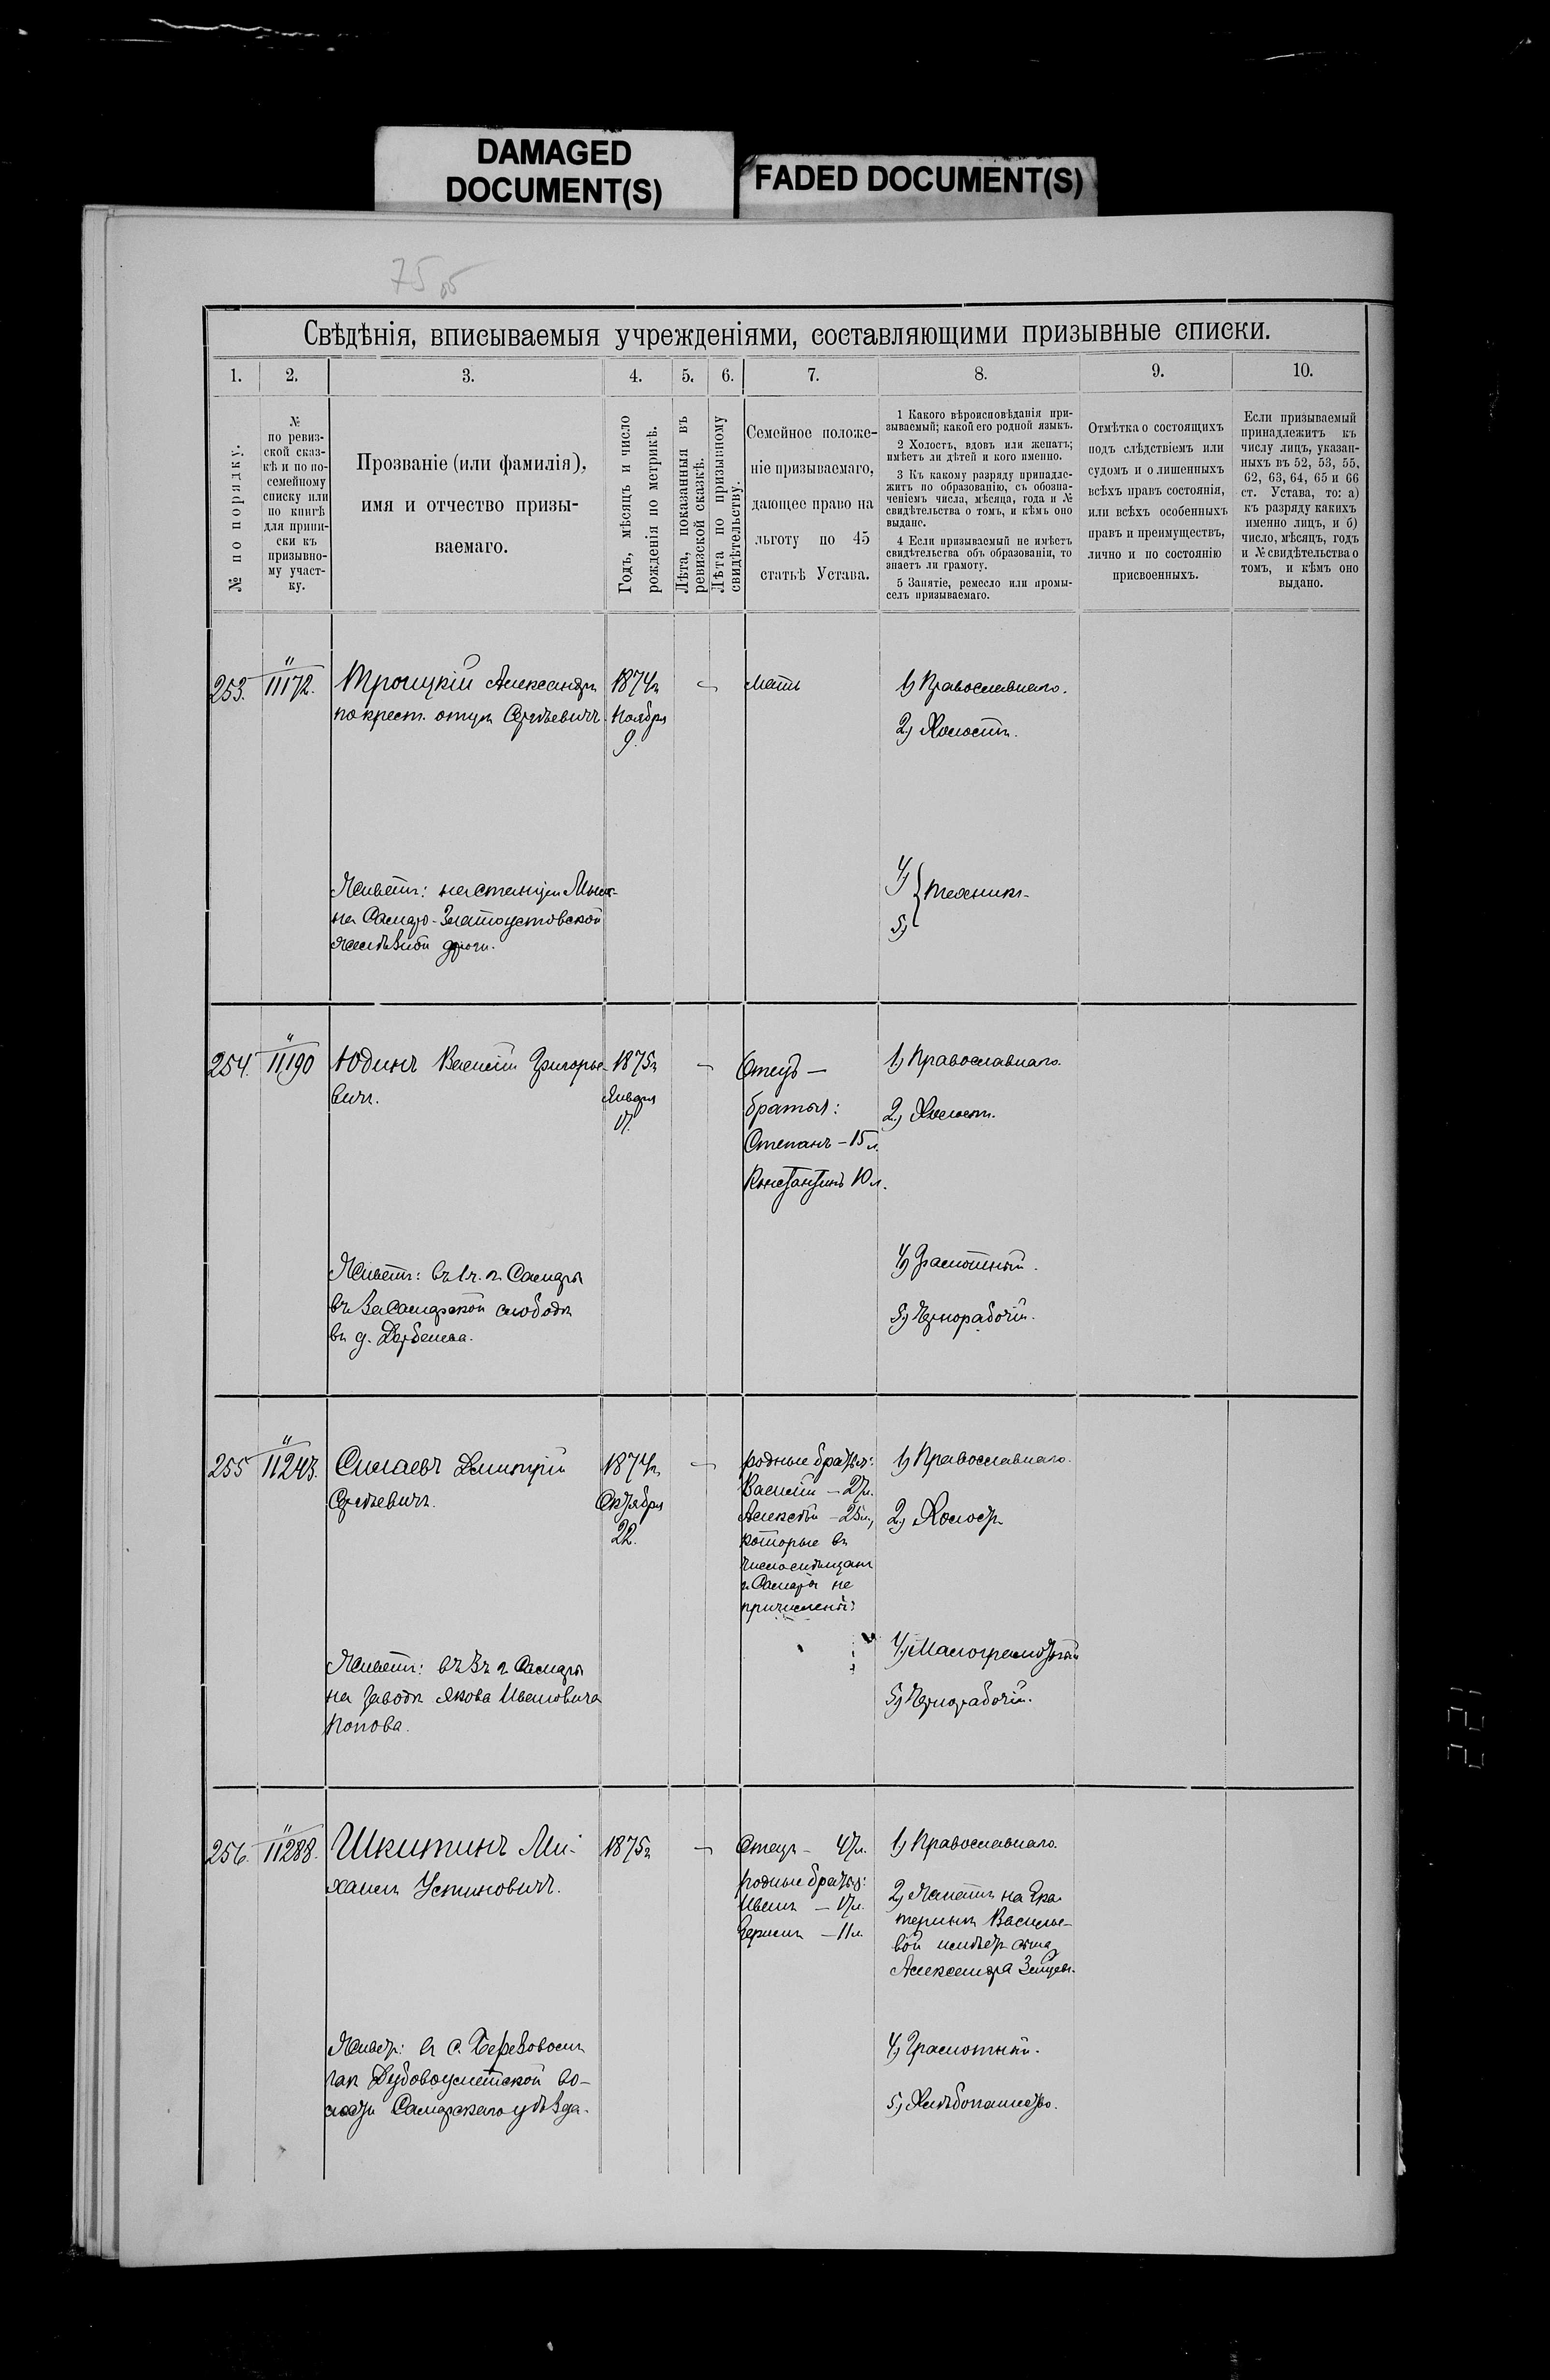 DAMAGED
DOCUMENT(S)
FADED DOCUMENT(S)
75 об
Свѣдѣнія, вписываемыя учрежденіями, составляющими призывные списки.
1.
2.
3.
4.
5.
6.
7.
8.
9.
10.
№ по порядку.
№
по ревиз-
ской сказ-
кѣ и по по-
семейному
списку или
по книгѣ
для припи-
ски къ
призывно-
му участ-
ку.
Прозваніе (или фамилія),
имя и отчество призы-
ваемаго.
Годъ, мѣсяцъ и число
рожденія по метрикѣ.
Лѣта, показанныя въ
ревизской сказкѣ.
Лѣта по призывному
свидѣтельству.
Семейное положе-
ніе призываемаго,
дающее право на
льготу по 45
статьѣ Устава.
1 Какого вѣроисповѣданія при-
зываемый; какой его родной языкъ.
2 Холостъ, вдовъ или женатъ;
имѣетъ ли дѣтей и кого именно.
3 Къ какому разряду принадле-
житъ по образованію, съ обозна-
ченіемъ числа, мѣсяца, года и №
свидѣтельства о томъ, и кѣмъ оно
выдано.
4 Если призываемый не имѣетъ
свидѣтельства объ образованіи, то
знаетъ ли грамоту.
5 Занятіе, ремесло или промы-
селъ призываемаго.
Отмѣтка о состоящихъ
подъ слѣдствіемъ или
судомъ и о лишенныхъ
всѣхъ правъ состоянія,
или всѣхъ особенныхъ
правъ и преимуществъ,
лично и по состоянію
присвоенныхъ.
Если призываемый
принадлежитъ къ
числу лицъ, указан-
ныхъ въ 52, 53, 55,
62, 63, 64, 65 и 66
ст. Устава, то: а)
къ разряду какихъ
именно лицъ, и б)
число, мѣсяцъ, годъ
и № свидѣтельства о
томъ, и кѣмъ оно
выдано.
253.
"
11172.
Троицкій Александръ
по крест. отцу Сергѣевичъ.
1874 г.
Ноября
9.
-
Мать
1) Православнаго.
2) Холостъ.
Живетъ: на станціи
на Самаро-Златоустовской
желѣзной дороги.
4)
5)
Техникъ
254.
"
11190
Юдинъ Василій Григорье-
вичъ.
1875 г.
Января
17.
-
Отецъ —
братья:
Степанъ - 15 л.
Константинъ 10 л.
1) Православнаго.
2) Холостъ.
Живетъ: въ 1 ч. г. Самары
въ Засамарской слободѣ
въ д. Дербенева.
4) Грамотный.
5) Чернорабочій.
255
"
11243.
Симаевъ Дмитрій
Сергѣевичъ.
1874 г.
Октября
22.
-
родные братья:
Василій - 27 л.
Алексѣй - 25 л.,
которые въ
число мѣщанъ
г. Самары не
причислены
1) Православнаго.
2) Холостъ
Живетъ: въ 3 ч. г. Самары
на заводѣ Якова Ивановича
Попова.
4) Малограмотный
5) Чернорабочій.
256.
"
11288.
Шкитинъ Ми-
хаилъ Устиновичъ.
1875 г.
-
Отецъ - 47 л.
родные братья:
Иванъ - 17 л.
11 л.
1) Православнаго.
2) Женатъ на Ека-
теринѣ Василье-
вой имѣетъ сына
Александра
Живетъ: въ с.
Дубовоуметской во-
лости Самарскаго уѣзда.
4) Грамотный.
5) Хлѣбопашество.
221